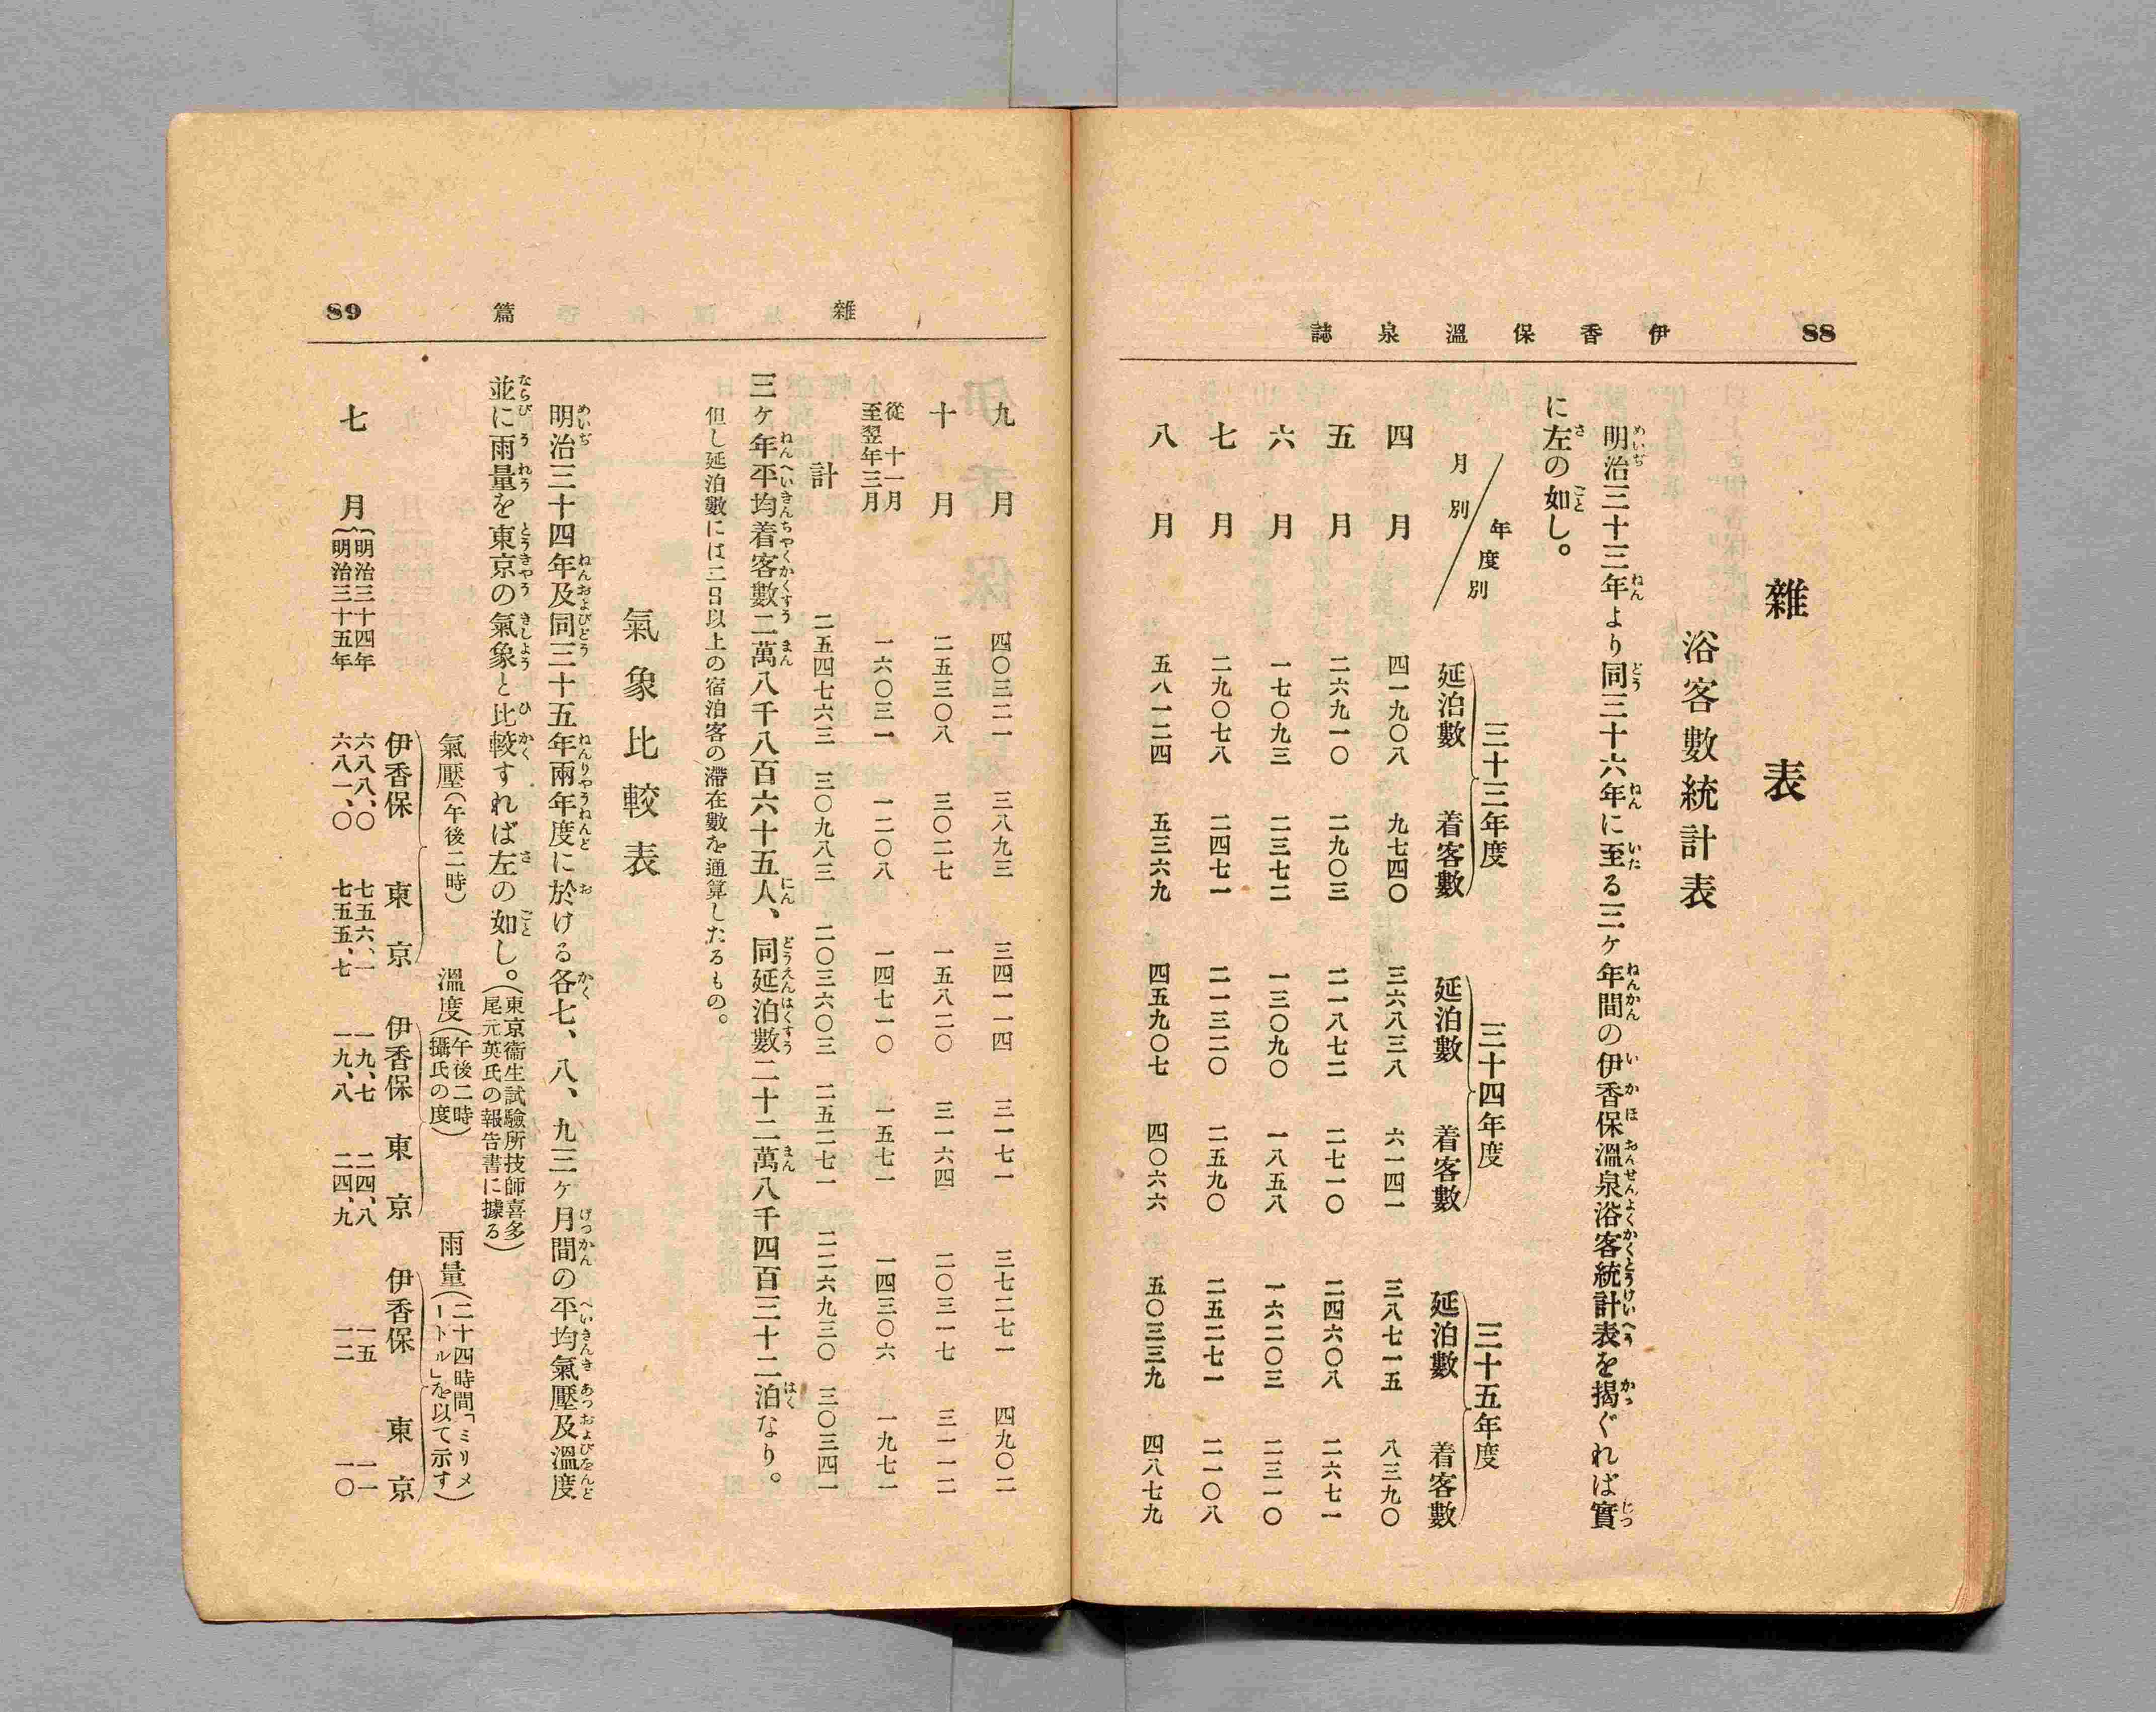 88 伊香保溫泉誌
雜表
浴客數統計表
明治三十三年より同三十六年に至る三ヶ年間の伊香保溫泉浴客統計表を揭ぐれば實
に左の如し。
年度別
月別
三十三年度 三十四年度 三十五年度
延泊數 着客數 延泊數 着客數 延泊數 着客數
四月 四一九〇八 九七四〇 三六八三八 六一四一 三八七一五 八三九〇
五月 二六九一〇 二九〇三 二一八七二 二七一〇 二四六〇八 二六七一
六月 一七〇九三 二三七二 一三〇九〇 一八五八 一六二〇三 二三一〇
七月 二九〇七八 二四七一 二一三二〇 二五九〇 二五二七一 二一〇八
八月 五八一二四 五三六九 四五九〇七 四〇六六 五〇三三九 四八七九
雜篇 89
九月 四〇三二一 三八九三 三四一一四 三一七一 三七二七一 四九〇二
十月 二五三〇八 三〇二七 一五八二〇 三一六四 二〇三一七 三一一二
從十一月
至翌年三月 一六〇三一 一二〇八 一四七一〇 一五七一 一四三〇六 一九七一
計 二五四七六三 三〇九八三 二〇三六〇三 二五二七一 二二六九三〇 三〇三四一
三ヶ年平均着客數二萬八千八百六十五人、同延泊數二十二萬八千四百三十二泊なり。
但し延泊數には二日以上の宿泊客の滯在數を通算したるもの。
氣象比較表
明治三十四年及同三十五年兩年度に於ける各七、八、九三ヶ月間の平均氣壓及溫度
並に雨量を東京の氣象と比較すれば左の如し。(東京衞生試驗所技師喜多
尾元英氏の報告書に據る)
氣壓(午後二時) 溫度(午後二時
攝氏の度) 雨量(二十四時間「ミリメ
ートル」を以て示す)
伊香保 東京 伊香保 東京 伊香保 東京
七月(明治三十四年 六八八、〇 七五六、一 一九、七 二四、八 一五 一一
明治三十五年 六八一、〇 七五五、七 一九、八 二四、九 一二 一〇